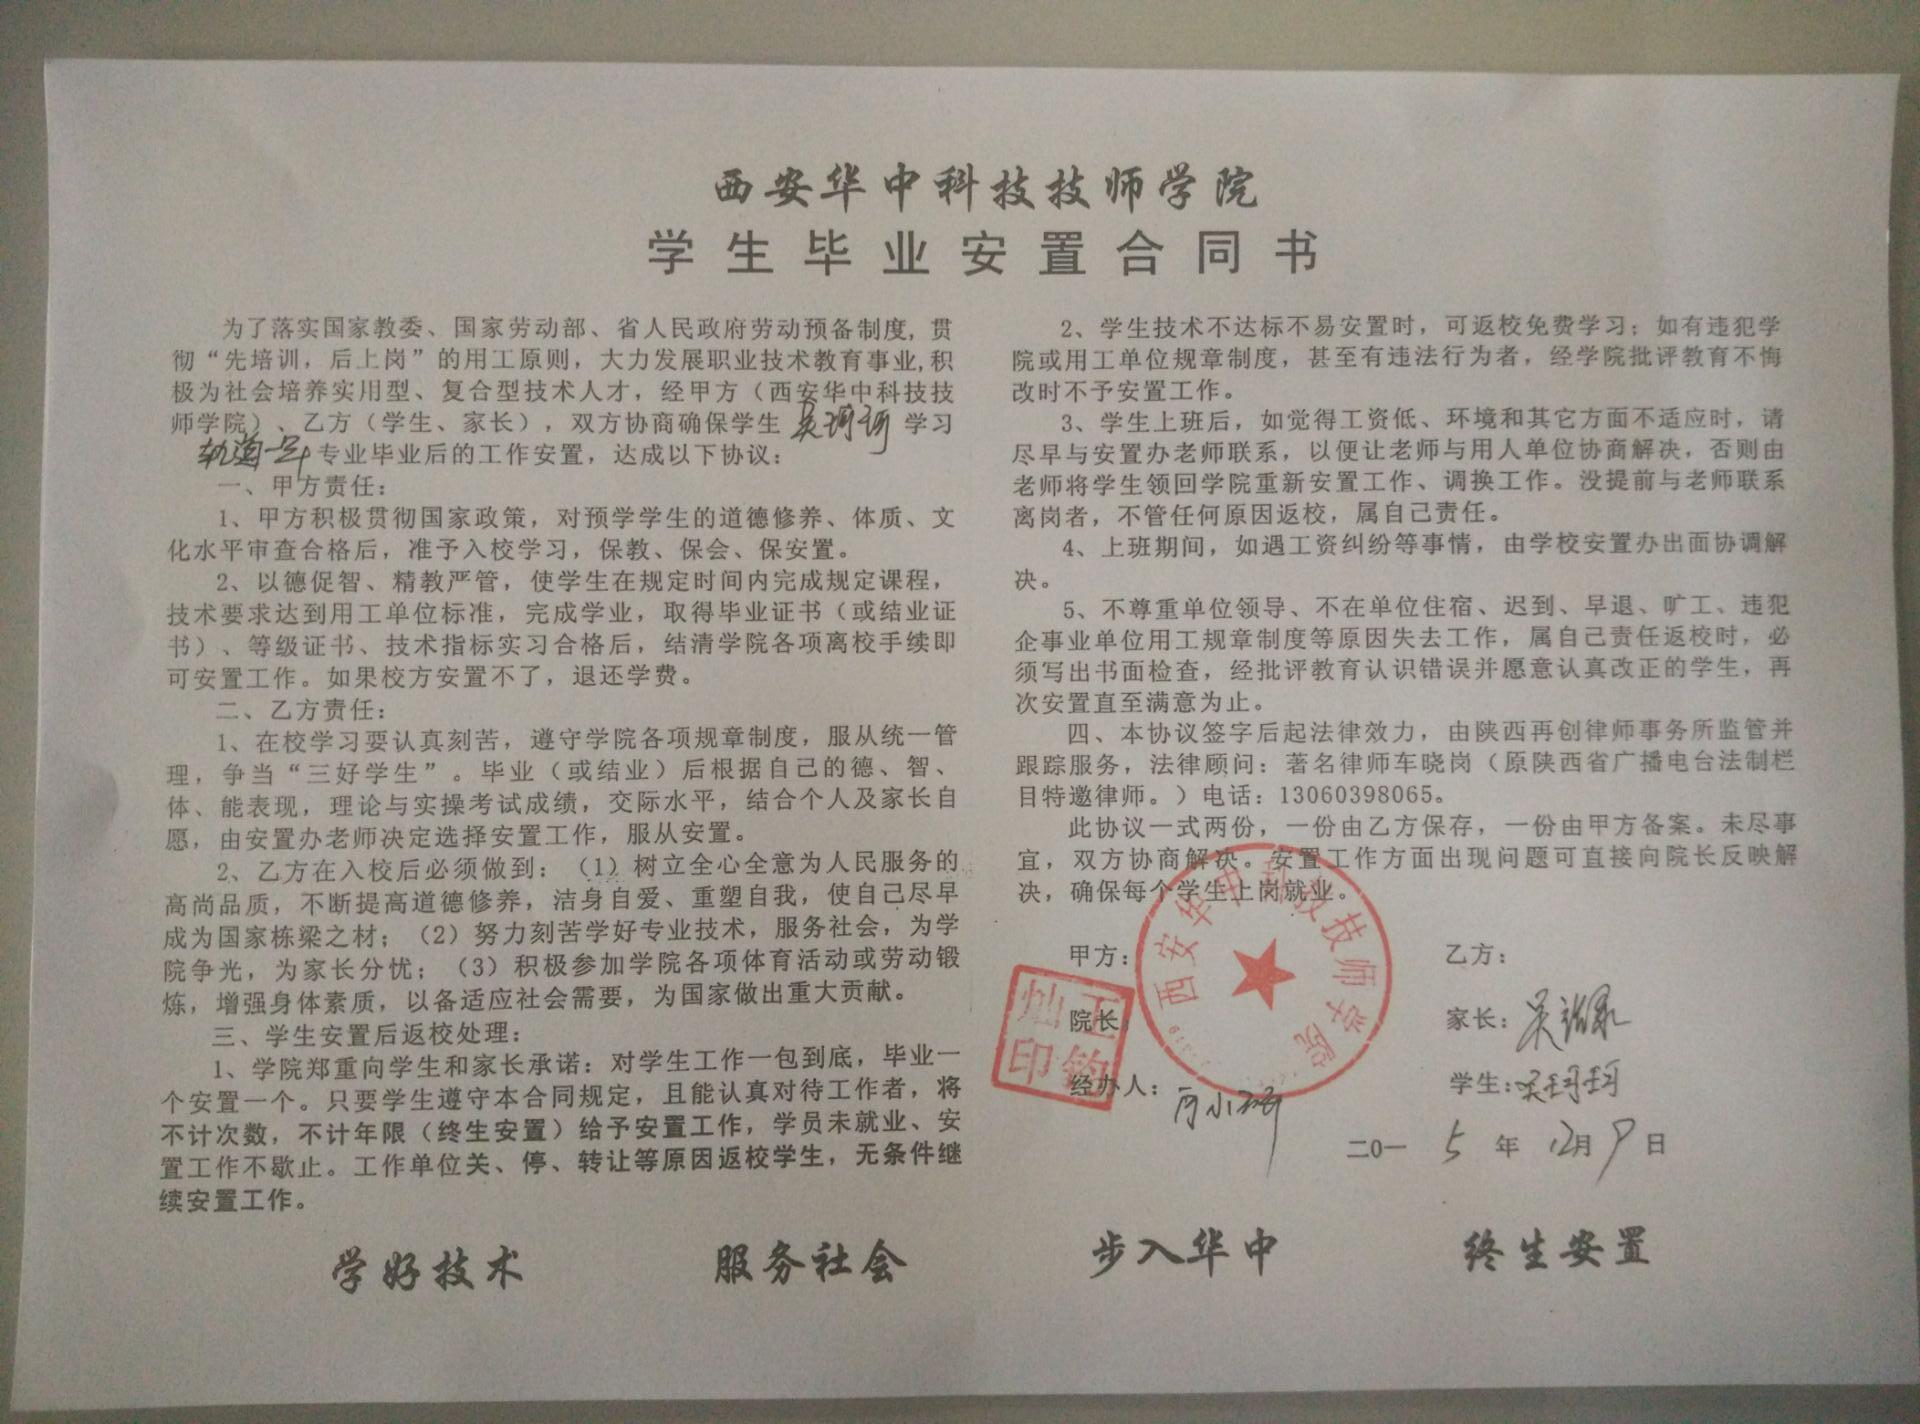 西安华中科技技师学院
学生毕业安置合同书
为了落实国家教委、国家劳动部、省人民政府劳动预备制度,贯
彻“先培训，后上岗”的用工原则，大力发展职业技术教育事业,积
极为社会培养实用型、复合型技术人才，经甲方（西安华中科技技
师学院）、乙方（学生、家长），双方协商确保学生 吴珂珂 学习
专业毕业后的工作安置，达成以下协议：
一、甲方责任：
1、甲方积极贯彻国家政策，对预学学生的道德修养、体质、文
化水平审查合格后，准予入校学习，保教、保会、保安置。
2、以德促智、精教严管，使学生在规定时间内完成规定课程，
技术要求达到用工单位标准，完成学业，取得毕业证书（或结业证
书）、等级证书、技术指标实习合格后，结清学院各项离校手续即
可安置工作。如果校方安置不了，退还学费。
二、乙方责任：
1、在校学习要认真刻苦，遵守学院各项规章制度，服从统一管
理，争当“三好学生”。毕业（或结业）后根据自己的德、智、
体、能表现，理论与实操考试成绩，交际水平，结合个人及家长自
愿，由安置办老师决定选择安置工作，服从安置。
2、乙方在入校后必须做到：（1）树立全心全意为人民服务的
高尚品质，不断提高道德修养，洁身自爱、重塑自我，使自己尽早
成为国家栋梁之材；（2）努力刻苦学好专业技术，服务社会，为学
院争光，为家长分忧；（3）积极参加学院各项体育活动或劳动锻
炼，增强身体素质，以备适应社会需要，为国家做出重大贡献。
三、学生安置后返校处理：
1、学院郑重向学生和家长承诺：对学生工作一包到底，毕业一
个安置一个。只要学生遵守本合同规定，且能认真对待工作者，将
不计次数，不计年限（终生安置）给予安置工作，学员未就业、安
置工作不歇止。工作单位关、停、转让等原因返校学生，无条件继
续安置工作。
2、学生技术不达标不易安置时，可返校免费学习；如有违犯学
院或用工单位规章制度，甚至有违法行为者，经学院批评教育不悔
改时不予安置工作。
3、学生上班后，如觉得工资低、环境和其它方面不适应时，请
尽早与安置办老师联系，以便让老师与用人单位协商解决，否则由
老师将学生领回学院重新安置工作、调换工作。没提前与老师联系
离岗者，不管任何原因返校，属自己责任。
4、上班期间，如遇工资纠纷等事情，由学校安置办出面协调解
决。
5、不尊重单位领导、不在单位住宿、迟到、早退、旷工、违犯
企事业单位用工规章制度等原因失去工作，属自己责任返校时，必
须写出书面检查，经批评教育认识错误并愿意认真改正的学生，再
次安置直至满意为止。
四、本协议签字后起法律效力，由陕西再创律师事务所监管并
跟踪服务，法律顾问：著名律师车晓岗（原陕西省广播电台法制栏
目特邀律师。）电话：13060398065。
此协议一式两份，一份由乙方保存，一份由甲方备案。未尽事
宜，双方协商解决。安置工作方面出现问题可直接向院长反映解
决，确保每个学生上岗就业。
甲方： 乙方：
西安华中科技技师学院
院长： 家长：吴
经办人： 学生：吴珂珂
二0一5年12月9日
学好技术 服务社会 步入华中 终生安置